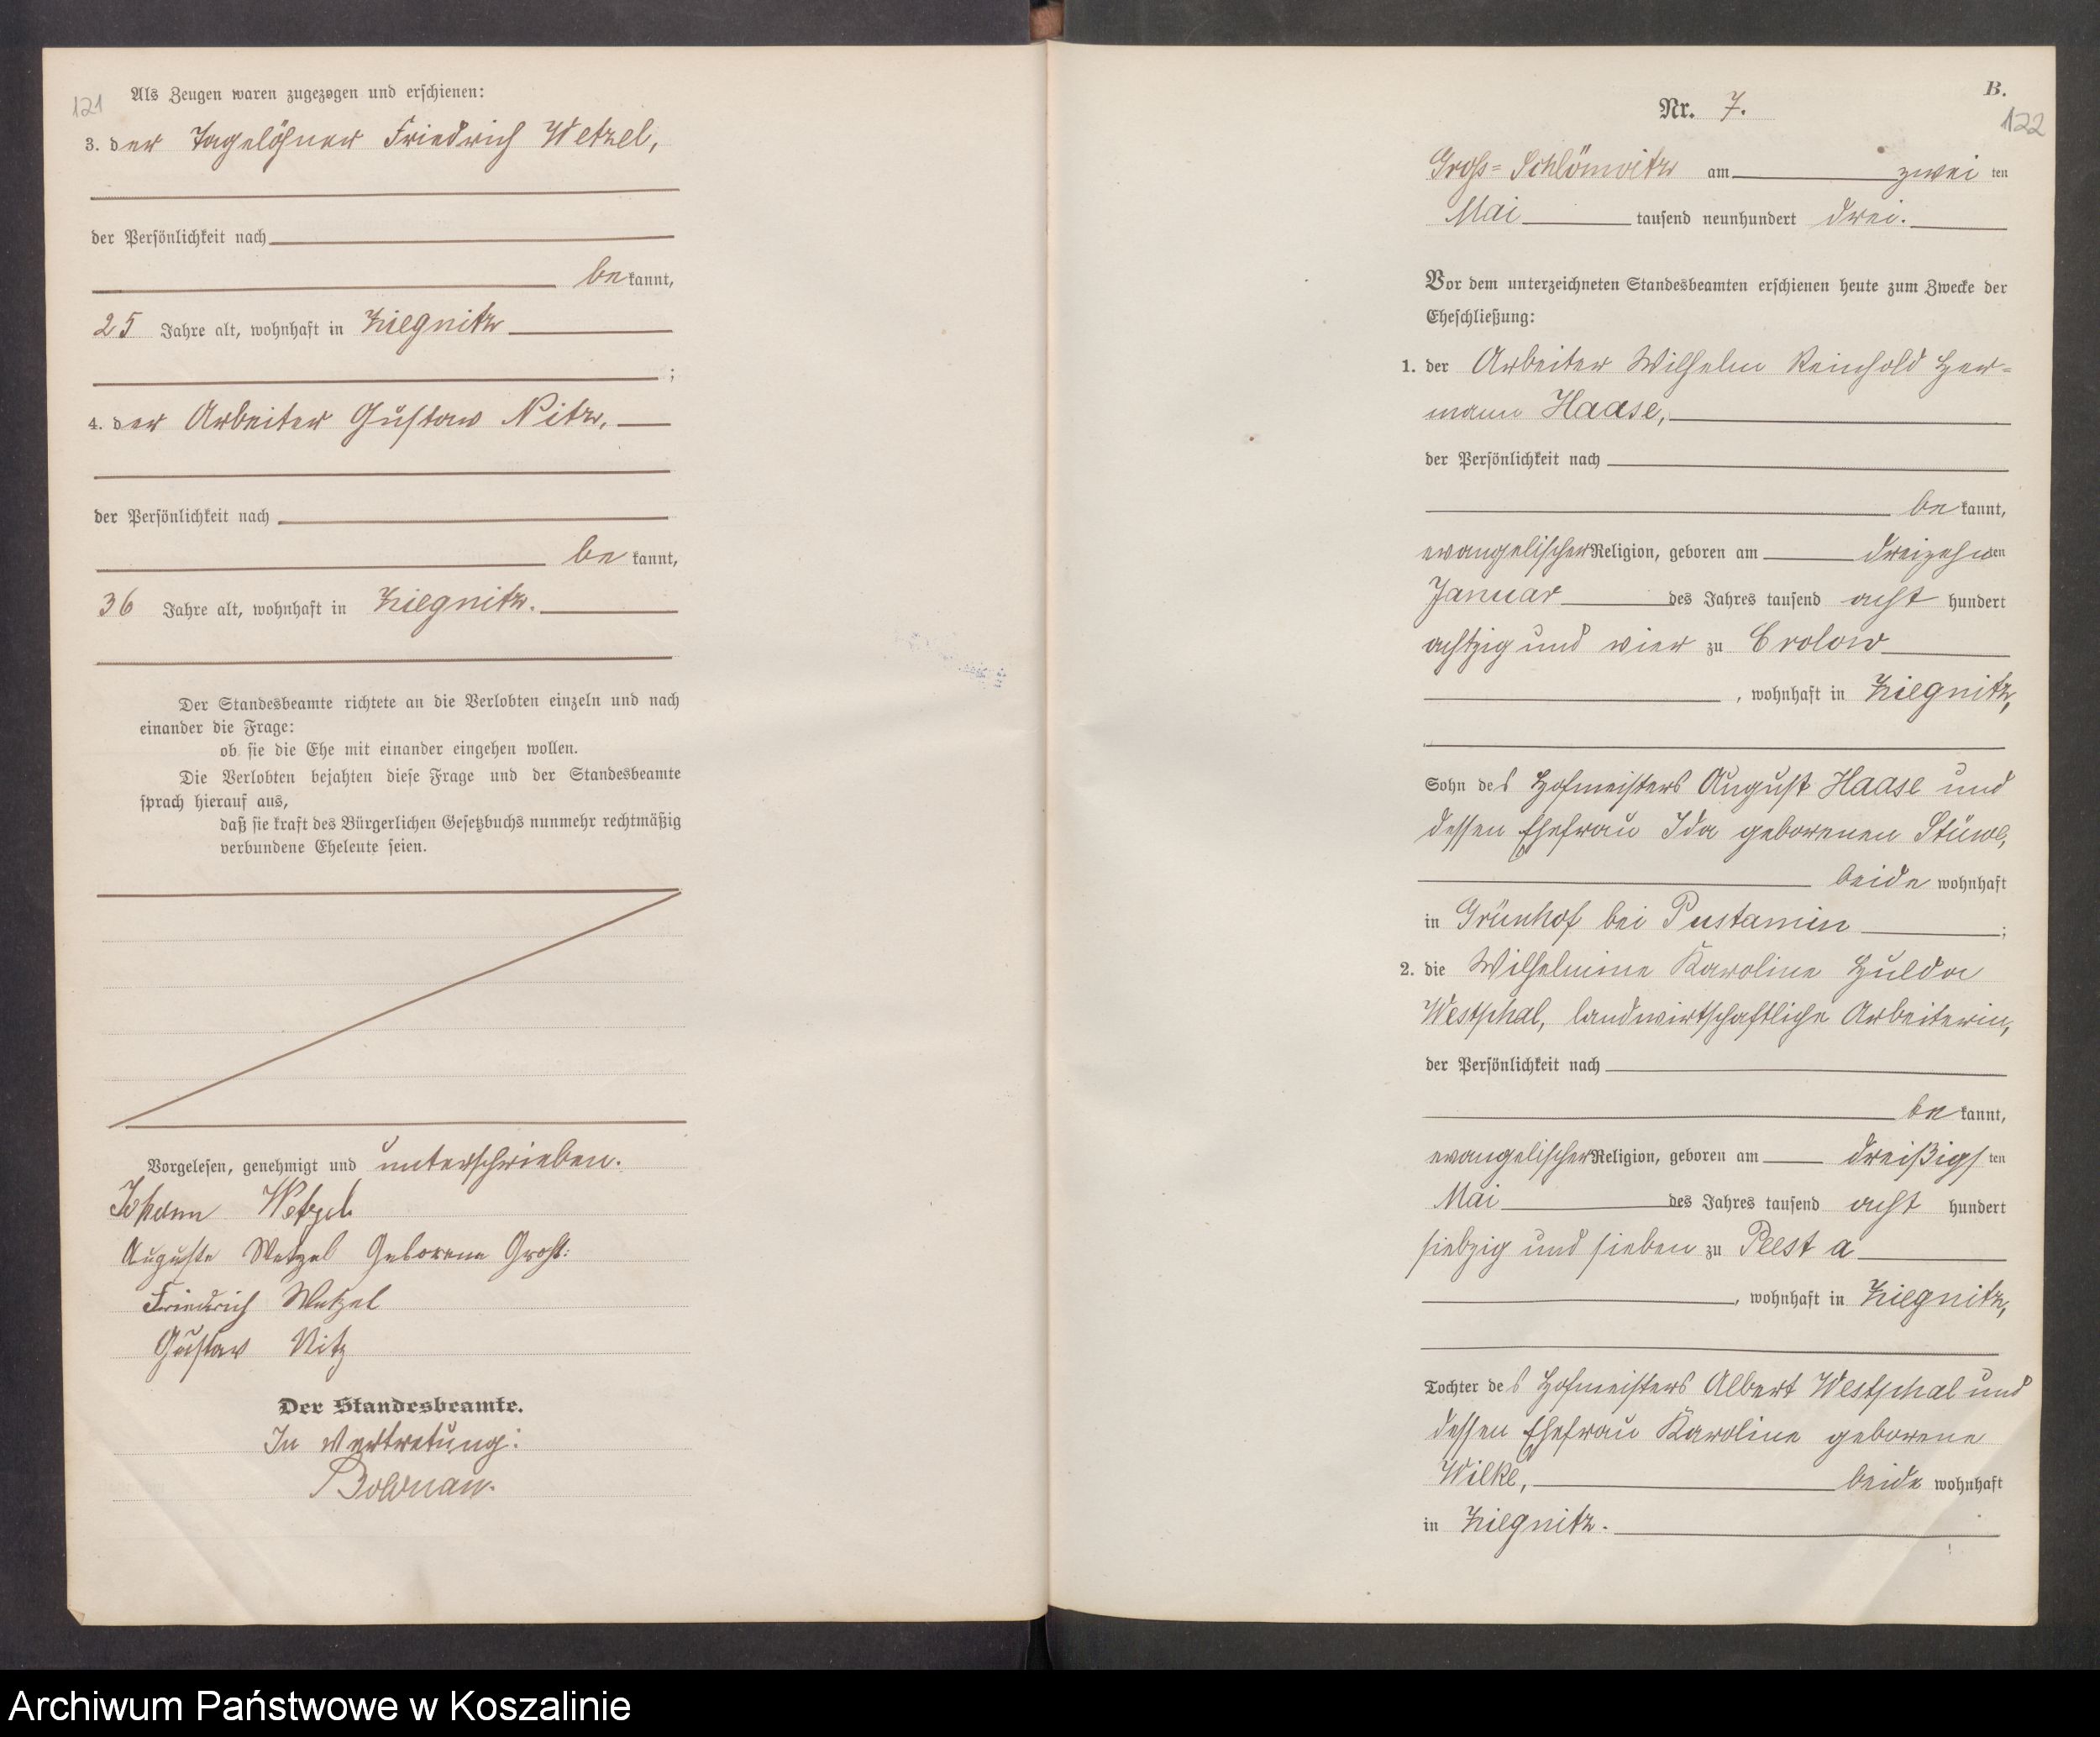 121
Als Zeugen waren zugezogen und erschienen:
3. der Tagelöhner Friedrich Wetzel,
der Persönlichkeit nach
bekannt,
25 Jahre alt, wohnhaft in Ziegnitz
;
4. der Arbeiter Gustav Nitz,
der Persönlichkeit nach
be kannt,
36 Jahre alt, wohnhaft in Ziegnitz.
Der Standesbeamte richtete an die Verlobten einzeln und nach
einander die Frage:
ob sie die Ehe mit einander eingehen wollen.
Die Verlobten bejahten diese Frage und der Standesbeamte
sprach hierauf aus,
daß sie kraft des Bürgerlichen Gesetzbuchs nunmehr rechtmäßig
verbundene Eheleute seien.
Vorgelesen, genehmigt und unterschrieben.
Johann Wetzel
Auguste Wetzel Geborene
Friedrich Wetzel
Gustav Nitz
Der Standesbeamte.
In Vertretung:
B.
122
Nr. 7.
Gross-Schlönwitz am zwei ten
Mai tausend neunhundert drei.
Vor dem unterzeichneten Standesbeamten erschienen heute zum Zwecke der
Eheschließung:
1. der Arbeiter Wilhelm Reinhold Her=
mann Haase,
der Persönlichkeit nach
be kannt,
evangelischer Religion, geboren am dreizehnten
Januar des Jahres tausend acht hundert
achtzig und vier zu Crolow
, wohnhaft in Ziegnitz,
Sohn des Hofmeisters August Haase und
dessen Ehefrau Ida geborenen Stüwe,
beide wohnhaft
in Grünhof bei Pustamin ;
2. die Wilhelmine Karoline Hulda
Westphal, landwirtschaftliche Arbeiterin,
der Persönlichkeit nach
be kannt,
evangelischer Religion, geboren am dreißigsten
Mai des Jahres tausend acht hundert
siebzig und sieben zu Peest a
, wohnhaft in Ziegnitz,
Tochter des Hofmeisters Albert Westphal und
dessen Ehefrau Karoline geborene
Wilke, beide wohnhaft
in Ziegnitz.
Archiwum Państwowe w Koszalinie